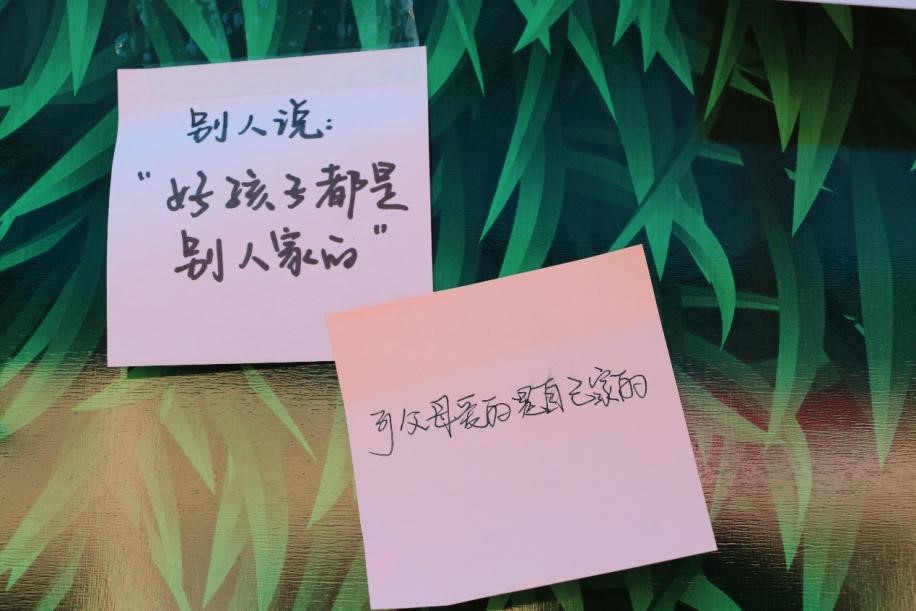 别人说：
"好孩子都是
别人家的"
可父母爱的是自己家的